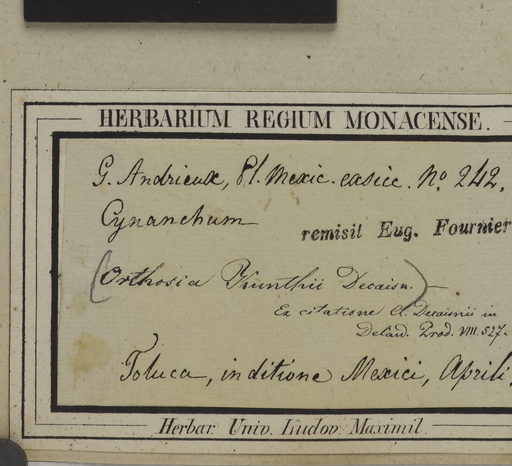 HERBARIUM REGIUM MONACENSE.
G. Andrieux, Pl. Mexic. exsicc. No. 242.
Cynanchum
remisit Eug. Fournier
(Orthosia Kunthii Decaisn.)
Ex citatione cl. Decaisnii in
Decand. Prod. VIII. 527.
Toluca, in ditione Mexici, Aprili,
Herbar. Univ. Ludov. Maximil.